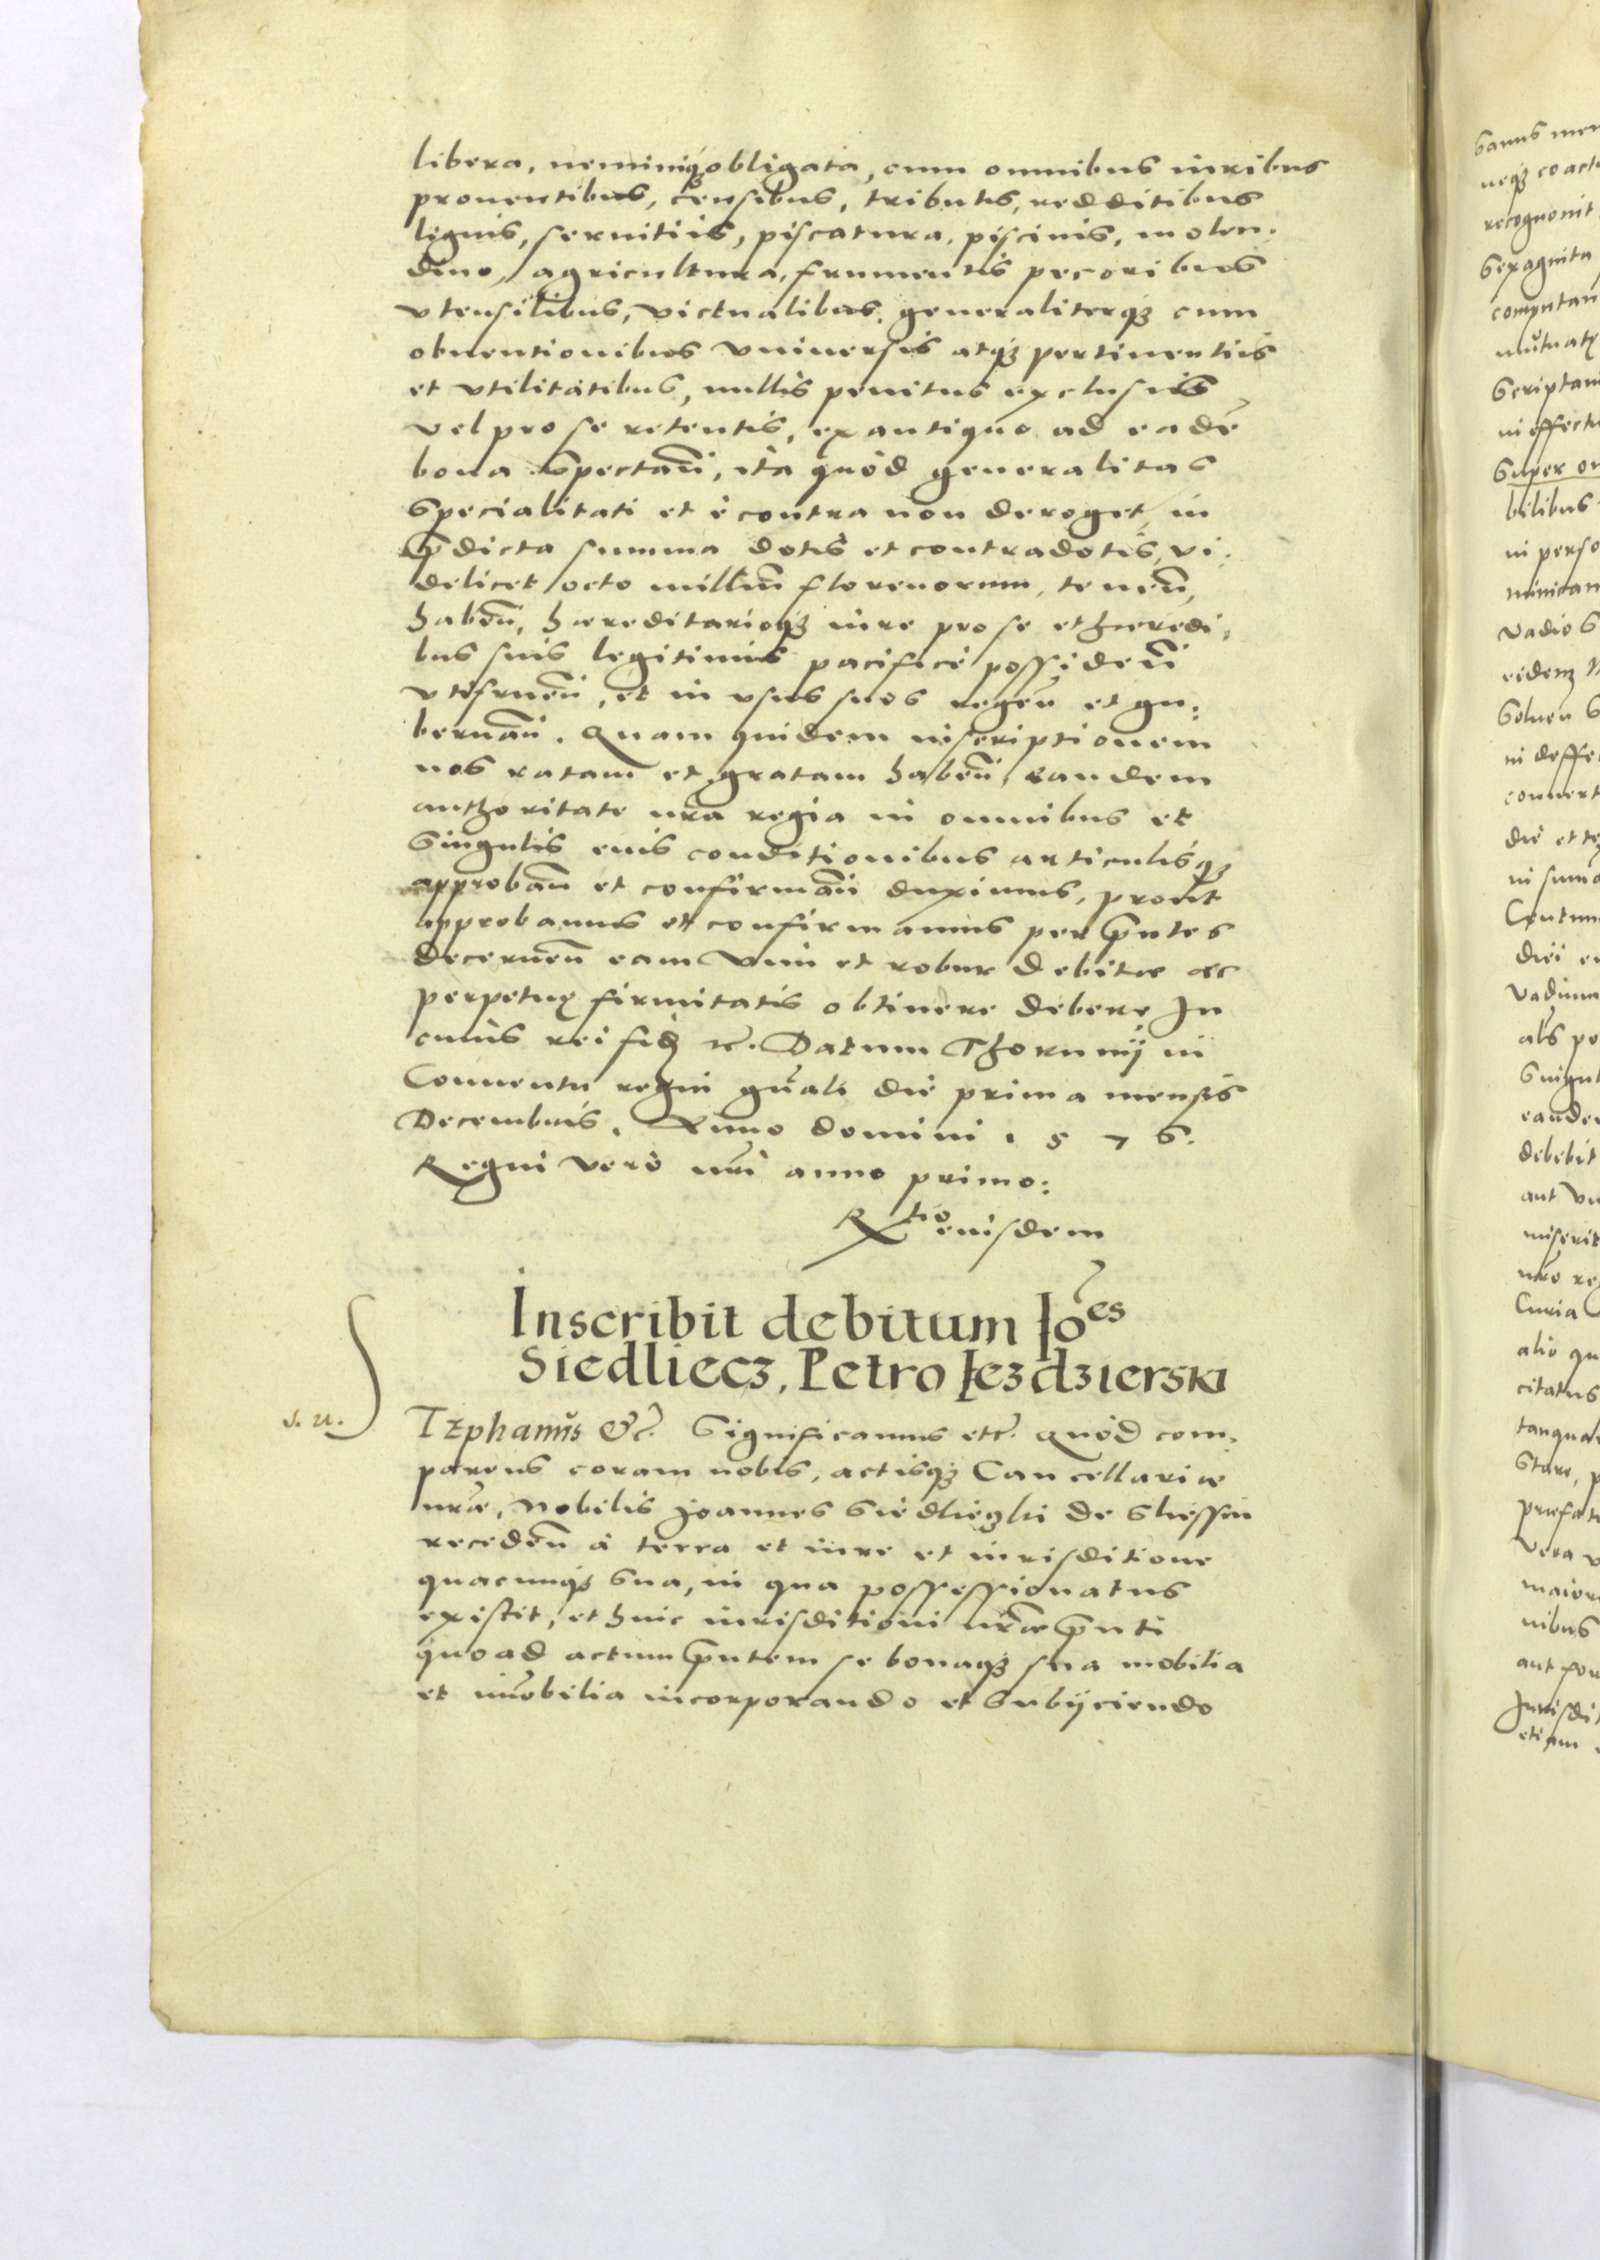 libera, neminiq́ obligata, cum omnibus iuribus
prouentibus, censibus, tributis, redditibus
lignis, seruitiis, piscatura, piscinis, molen:
dino, agricultura, frumentis pecoribus
vtensilibus, victualibus, generaliterq́ cum
obuentionibus vniuersis atq́ pertinentiis
et vtilitatibus, nullis penitus exclusis
vel pro se retentis, ex antiquo ad eadē
bona spectan̄, ita quòd generalitas
specialitati et è contra non deroget, in
p̄dicta summa dotis et contradotis, vi:
delicet octo milliū florenorum, tenen̄,
haben̄, hæreditarioq́ iure pro se et hæredi:
bus suis legitimis pacificè possiden̄
vtifruen̄, et in vsus suos regen̄ et gu:
bernan̄. Quam quidem inscriptionem
nos ratam et gratam haben̄, eandem
authoritate nr̄a regia in omnibus et
singulis eius conditionibus articulisq́
approban̄ et confirman̄ duximus, prout
approbamus et confirmamus per p̄ntes
decernen̄ eam vim et robur debitæ ac
perpetuę firmitatis obtinere debere. In
cuius rei fid etc. Datum Thorunij in
Conuentu regni gn̄ali die prima mensis
Decembris. Anno domini 1 5 7 6.
Regni verò nr̄i anno primo:
R<sup>tio</sup> eiusdem
Inscribit debitum Io<sup>es</sup>
Siedliecz, Petro Iezdzierski
s. u.
Stephanus &c. Significamus etc. Quòd com:
parens coram nobis, actisq́ Cancellariæ
nr̄æ, Nobilis Joannes Siedlieczki de Sliessin
receden̄ à terra et iure et iurisditione
quacunq́ sua, in qua possessionatus
existit, et huic iurisditioni nr̄æ p̄nti
quo ad actum p̄ntem se bonaq́ sua mobilia
et im̄obilia incorporando et subijciendo